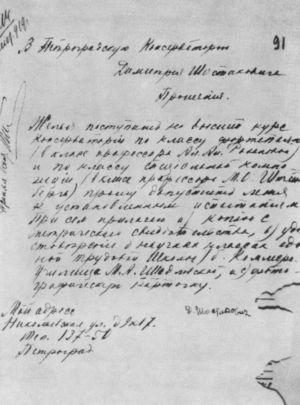 91
В Петроградскую Консерваторію
Димитрія Шостаковича
Прошение.
Желая поступить на высший курс
консерватории по классу фортепіано
(в класс профессора
и по классу специальной компо-
зиции (в класс профессора М.О. Штейн-
берга) прошу допустить меня
к установленным испытаніям
При сем прилагаю а) копию с
метрического свидетельства, б) удо-
стоверение о научных
ной трудовой Школы (б. Коммерч.
Училища М.А. Шидловской), а
графическую карточку.
Мой адрес Д. Шостакович
Николаевская ул. д 9 кв 7.
Тел. 137-50
Петроград